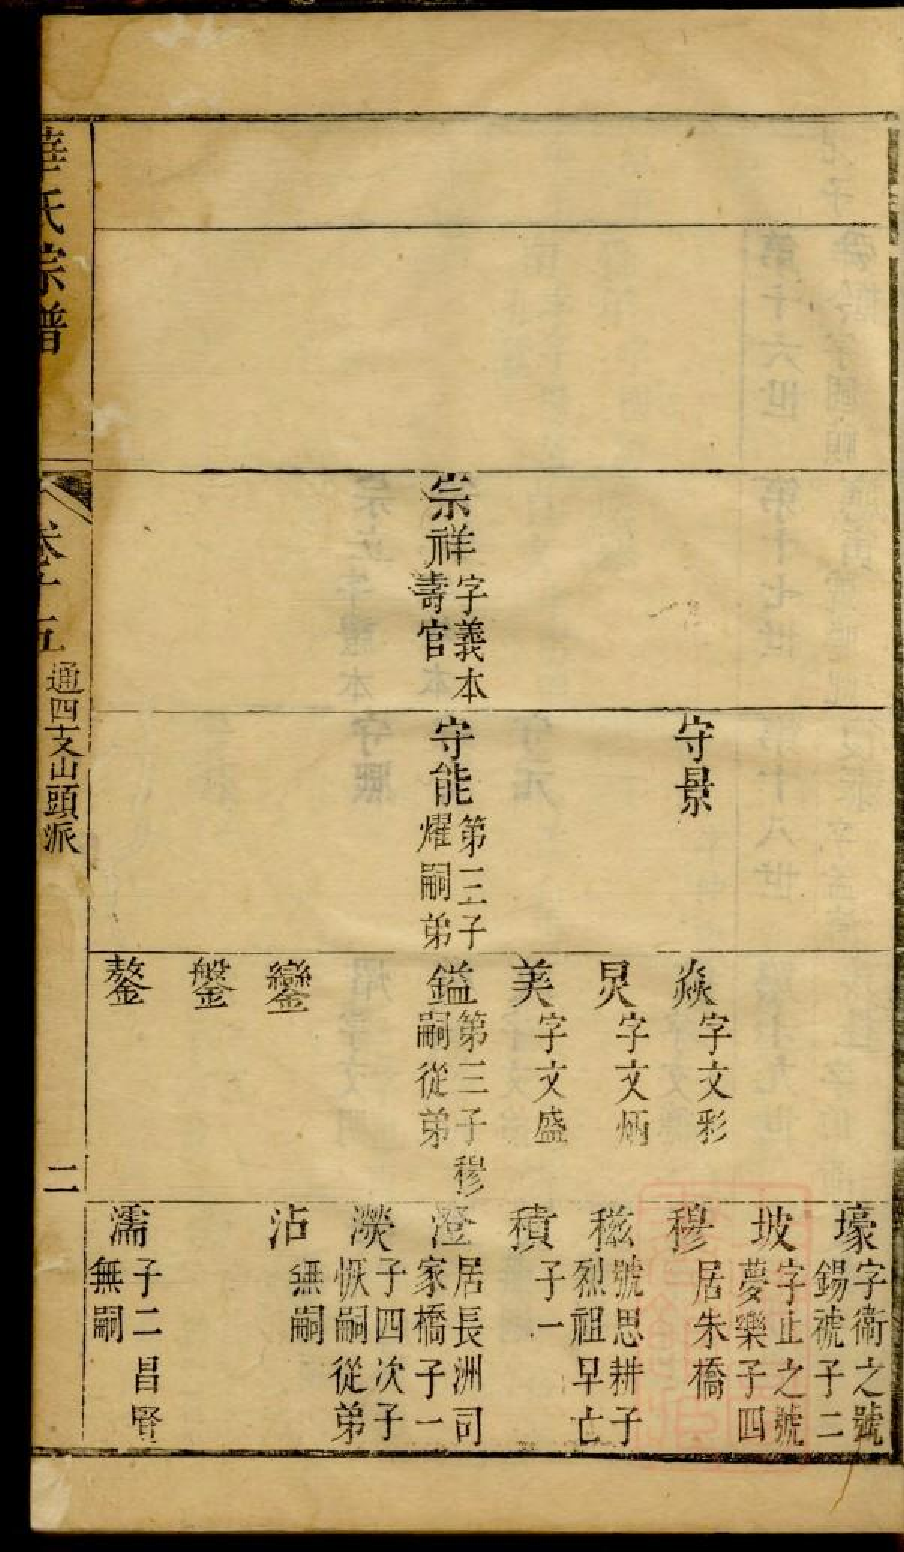 宗祥
字義本
壽官
守景
守能
第三子
燿嗣弟
焱
字文彩
炅
字文炳
美
字文盛
鎰
第三子穆
嗣從弟
鑾
鎜
鏊
壕
字衞之號
錫裭子二
坡
字止之號
夢樂子四
穆
居朱橋
稵
號思耕子
烈祖早亡
積
子一
澄
居長洲司
家橋子一
濙
子四次子
恢嗣從弟
沾
無嗣
濡
子二昌賢
無嗣
華氏宗譜
卷十五
通四支山頭派
二